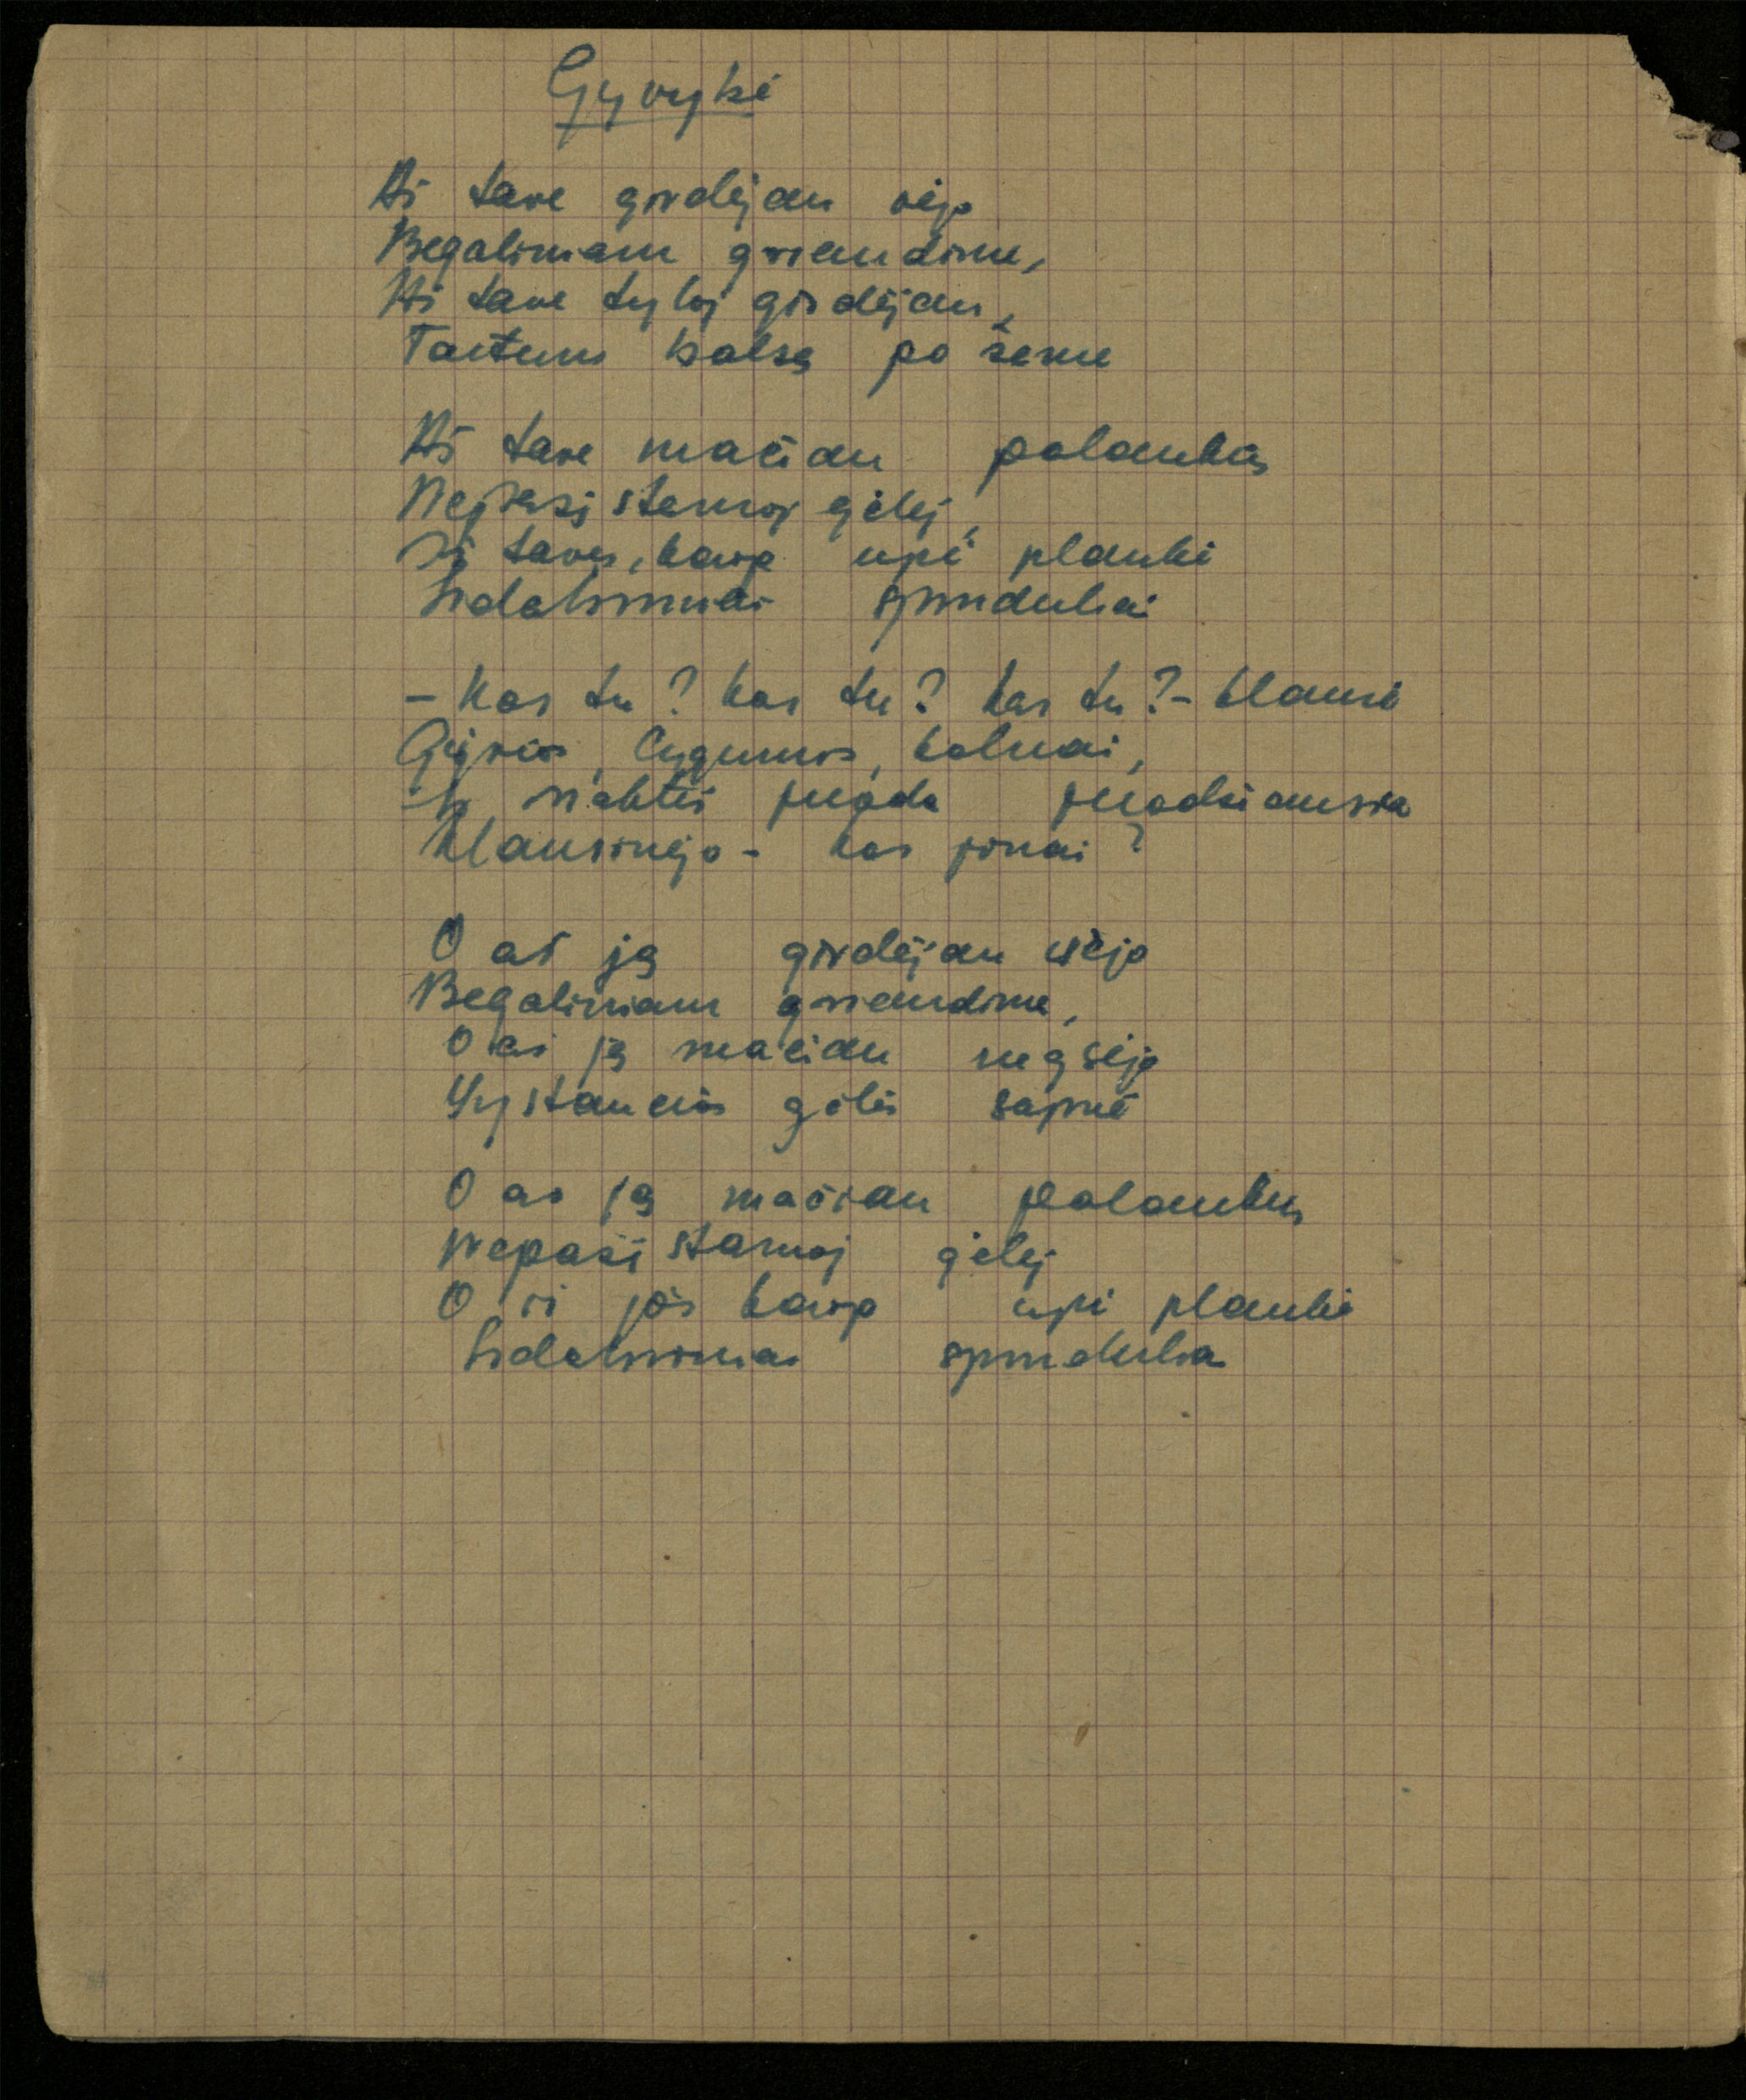 Gyvybė
Aš tave girdėjau vėjo
Begaliniam griaudime,
Aš tave tyloj girdėjau,
Tartum balsą po žeme
Aš tave mačiau palaukės
Nepažįstamoj gėlėj,
Iš tavęs, kaip upė plaukė
Sidabriniai spinduliai
– Kas tu? kas tu? kas tu? – klausė
Gijios, lygumos, kalnai,
Ir nakties juoda juodžiausia
Klausinėjo – kas jinai?
O aš ją girdėjau vėjo
Begaliniam griaudime,
O aš ją mačiau rugsėjo
Vystančios gėlės sapne
O aš ją mačiau palaukės
Nepažįstamoj gėlėj
O iš jos kaip upė plaukė
Sidabriniai spinduliai